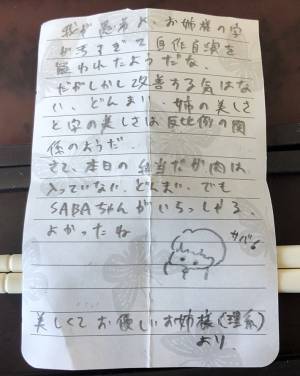 我が愚弟よ、お姉様の字
が汚すぎて自作自演を
疑われたようだな。
だがしかし改善する気はな
い、どんまい、姉の美しさ
と字の美しさは反比例の関
係のようだ。
さて、本日の弁当だが肉は
入っていない、どんまい、でも
SABAちゃんがいらっしゃる、
よかったね
サバー
美しくてお優しいお姉様(理系)
より、